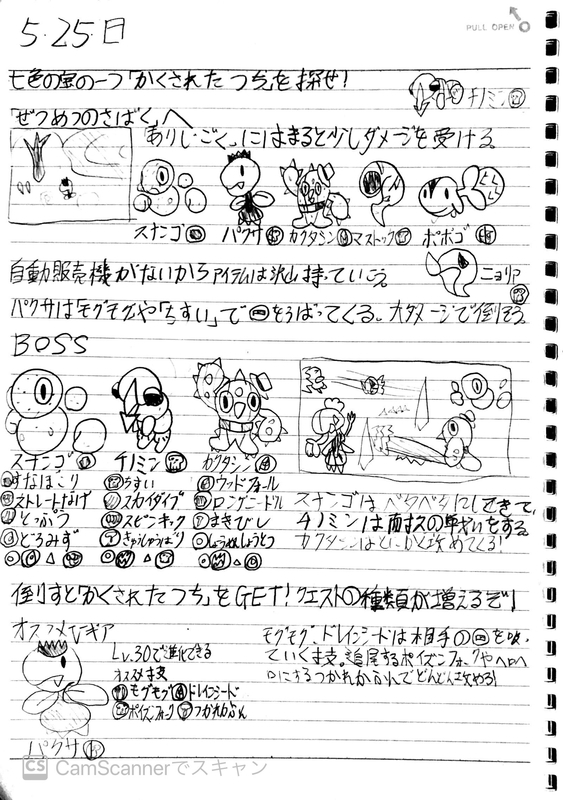 5.25.日
PULL OPEN
七色の宝の一つ「かくされたつち」を探せ!
チノミン
「ぜつめつのさばく」へ
「ありじごく」にはまると少しダメージを受ける
スナンゴ パクサ カクタシン マストック ポポゴ
自動販売機がないからアイテムは沢山持っていこう
ニョリア
パクサは「モグモグ」や「ちすい」で をうばってくる。大ダメージで倒そう
BOSS
スナンゴ チノミン カクタシン
すなぼこり ちすい ウッドフォール
ストレートなげ スカイダイブ ロングニードル
とっぷう スピンキック まきびし
どろみず しょうめんしょうとつ
スナンゴはベタベタにしてきて、
チノミンは
カクタシンはとにかく攻めてくる!
倒すと「かくされたつち」をGET!クエストの種類が増えるぞ!
オススメ
Lv.30で進化できる
オススメ
モグモグ ドレインシード
ポイズンフォーク つかれかふん
パクサ
モグモグ、ドレインシードは相手の を吸っ
ていく 。追尾するポイズンフォークやヘロヘ
ロにするつかれかふんでどんどん攻めろ!
CS CamScannerでスキャン